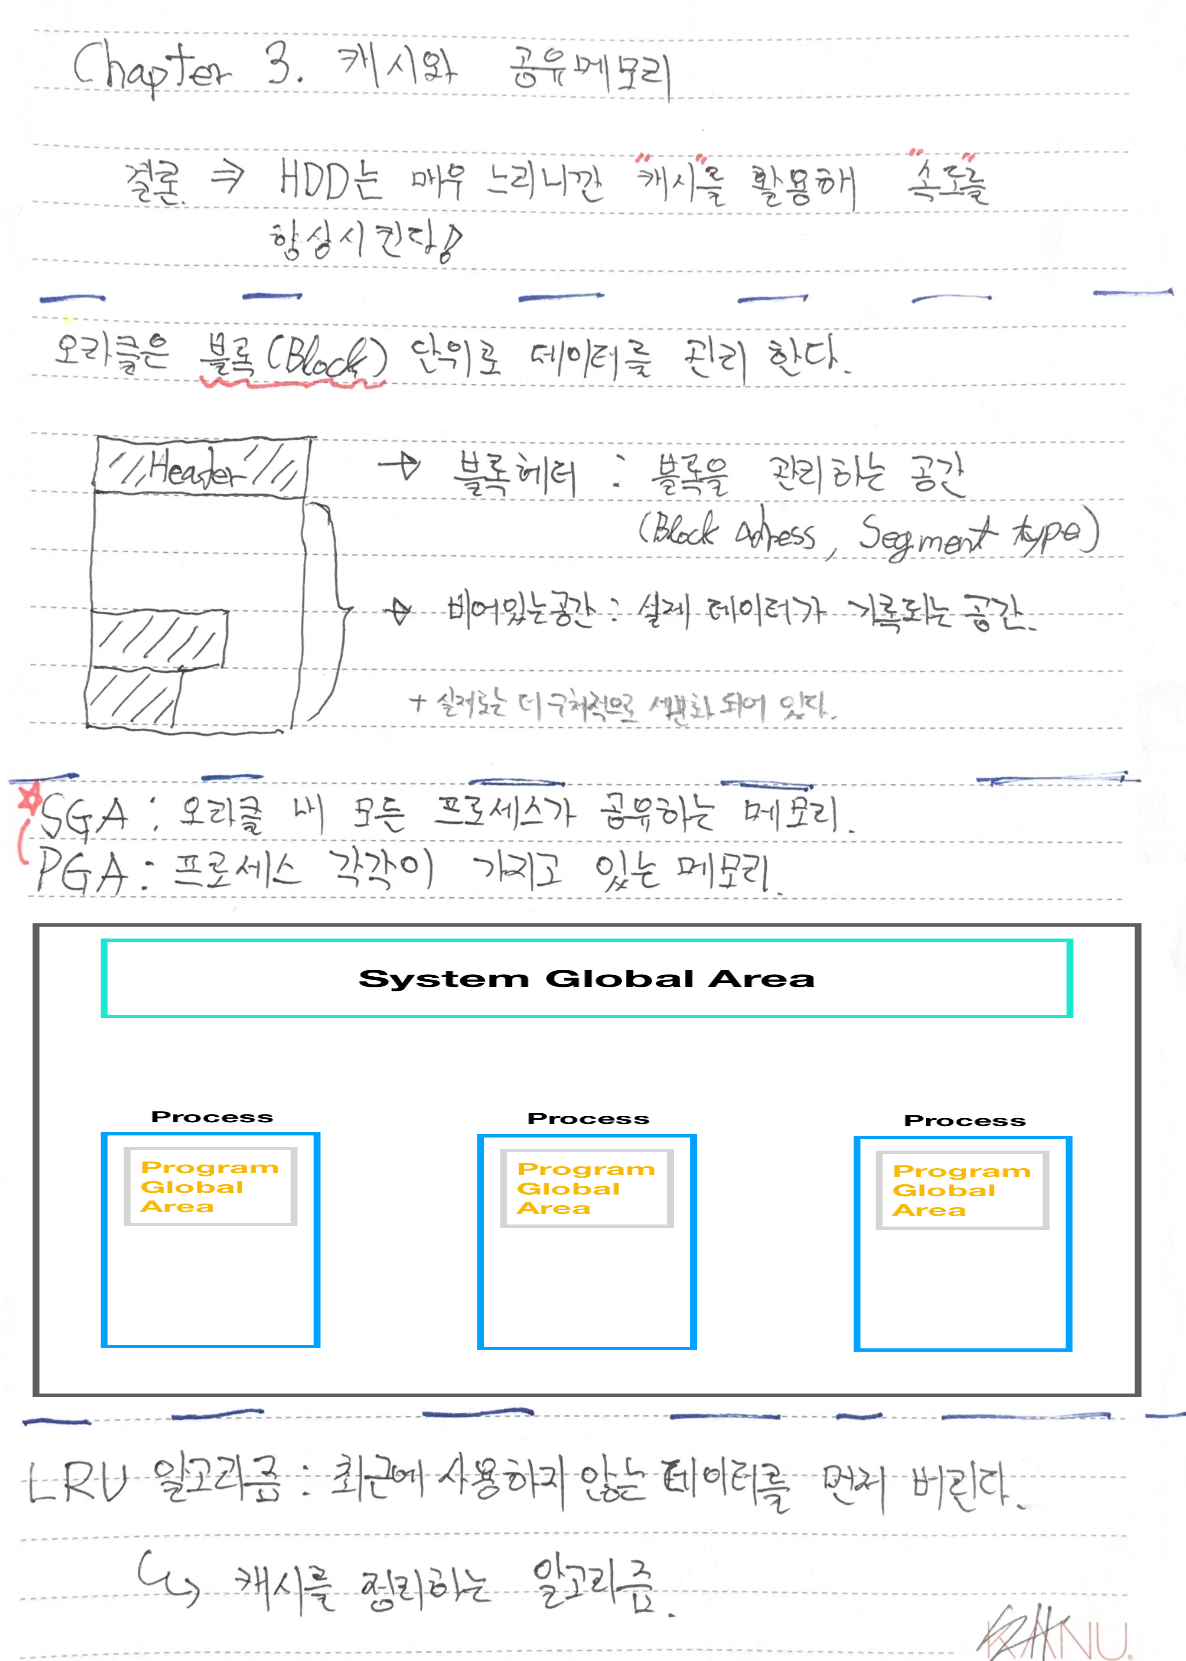 Chapter 3. 캐시와 공유메모리
결론 ⇒ HDD는 매우 느리니깐 "캐시"를 활용해 "속도"를
향상시킨다!
오라클은 블록(Block) 단위로 데이터를 관리 한다.
Header → 블록헤더 : 블록을 관리하는 공간
(Block Adress, Segment type)
→ 비어있는공간 : 실제 데이터가 기록되는 공간.
+ 실제로는 더 구체적으로 세분화 되어 있다.
SGA : 오라클 내 모든 프로세스가 공유하는 메모리.
PGA : 프로세스 각각이 가지고 있는 메모리.
System Global Area
Process Process Process
Program Program Program
Global Global Global
Area Area Area
LRU 알고리즘 : 최근에 사용하지 않는 데이터를 먼저 버린다.
↳ 캐시를 정리하는 알고리즘.
KANU.